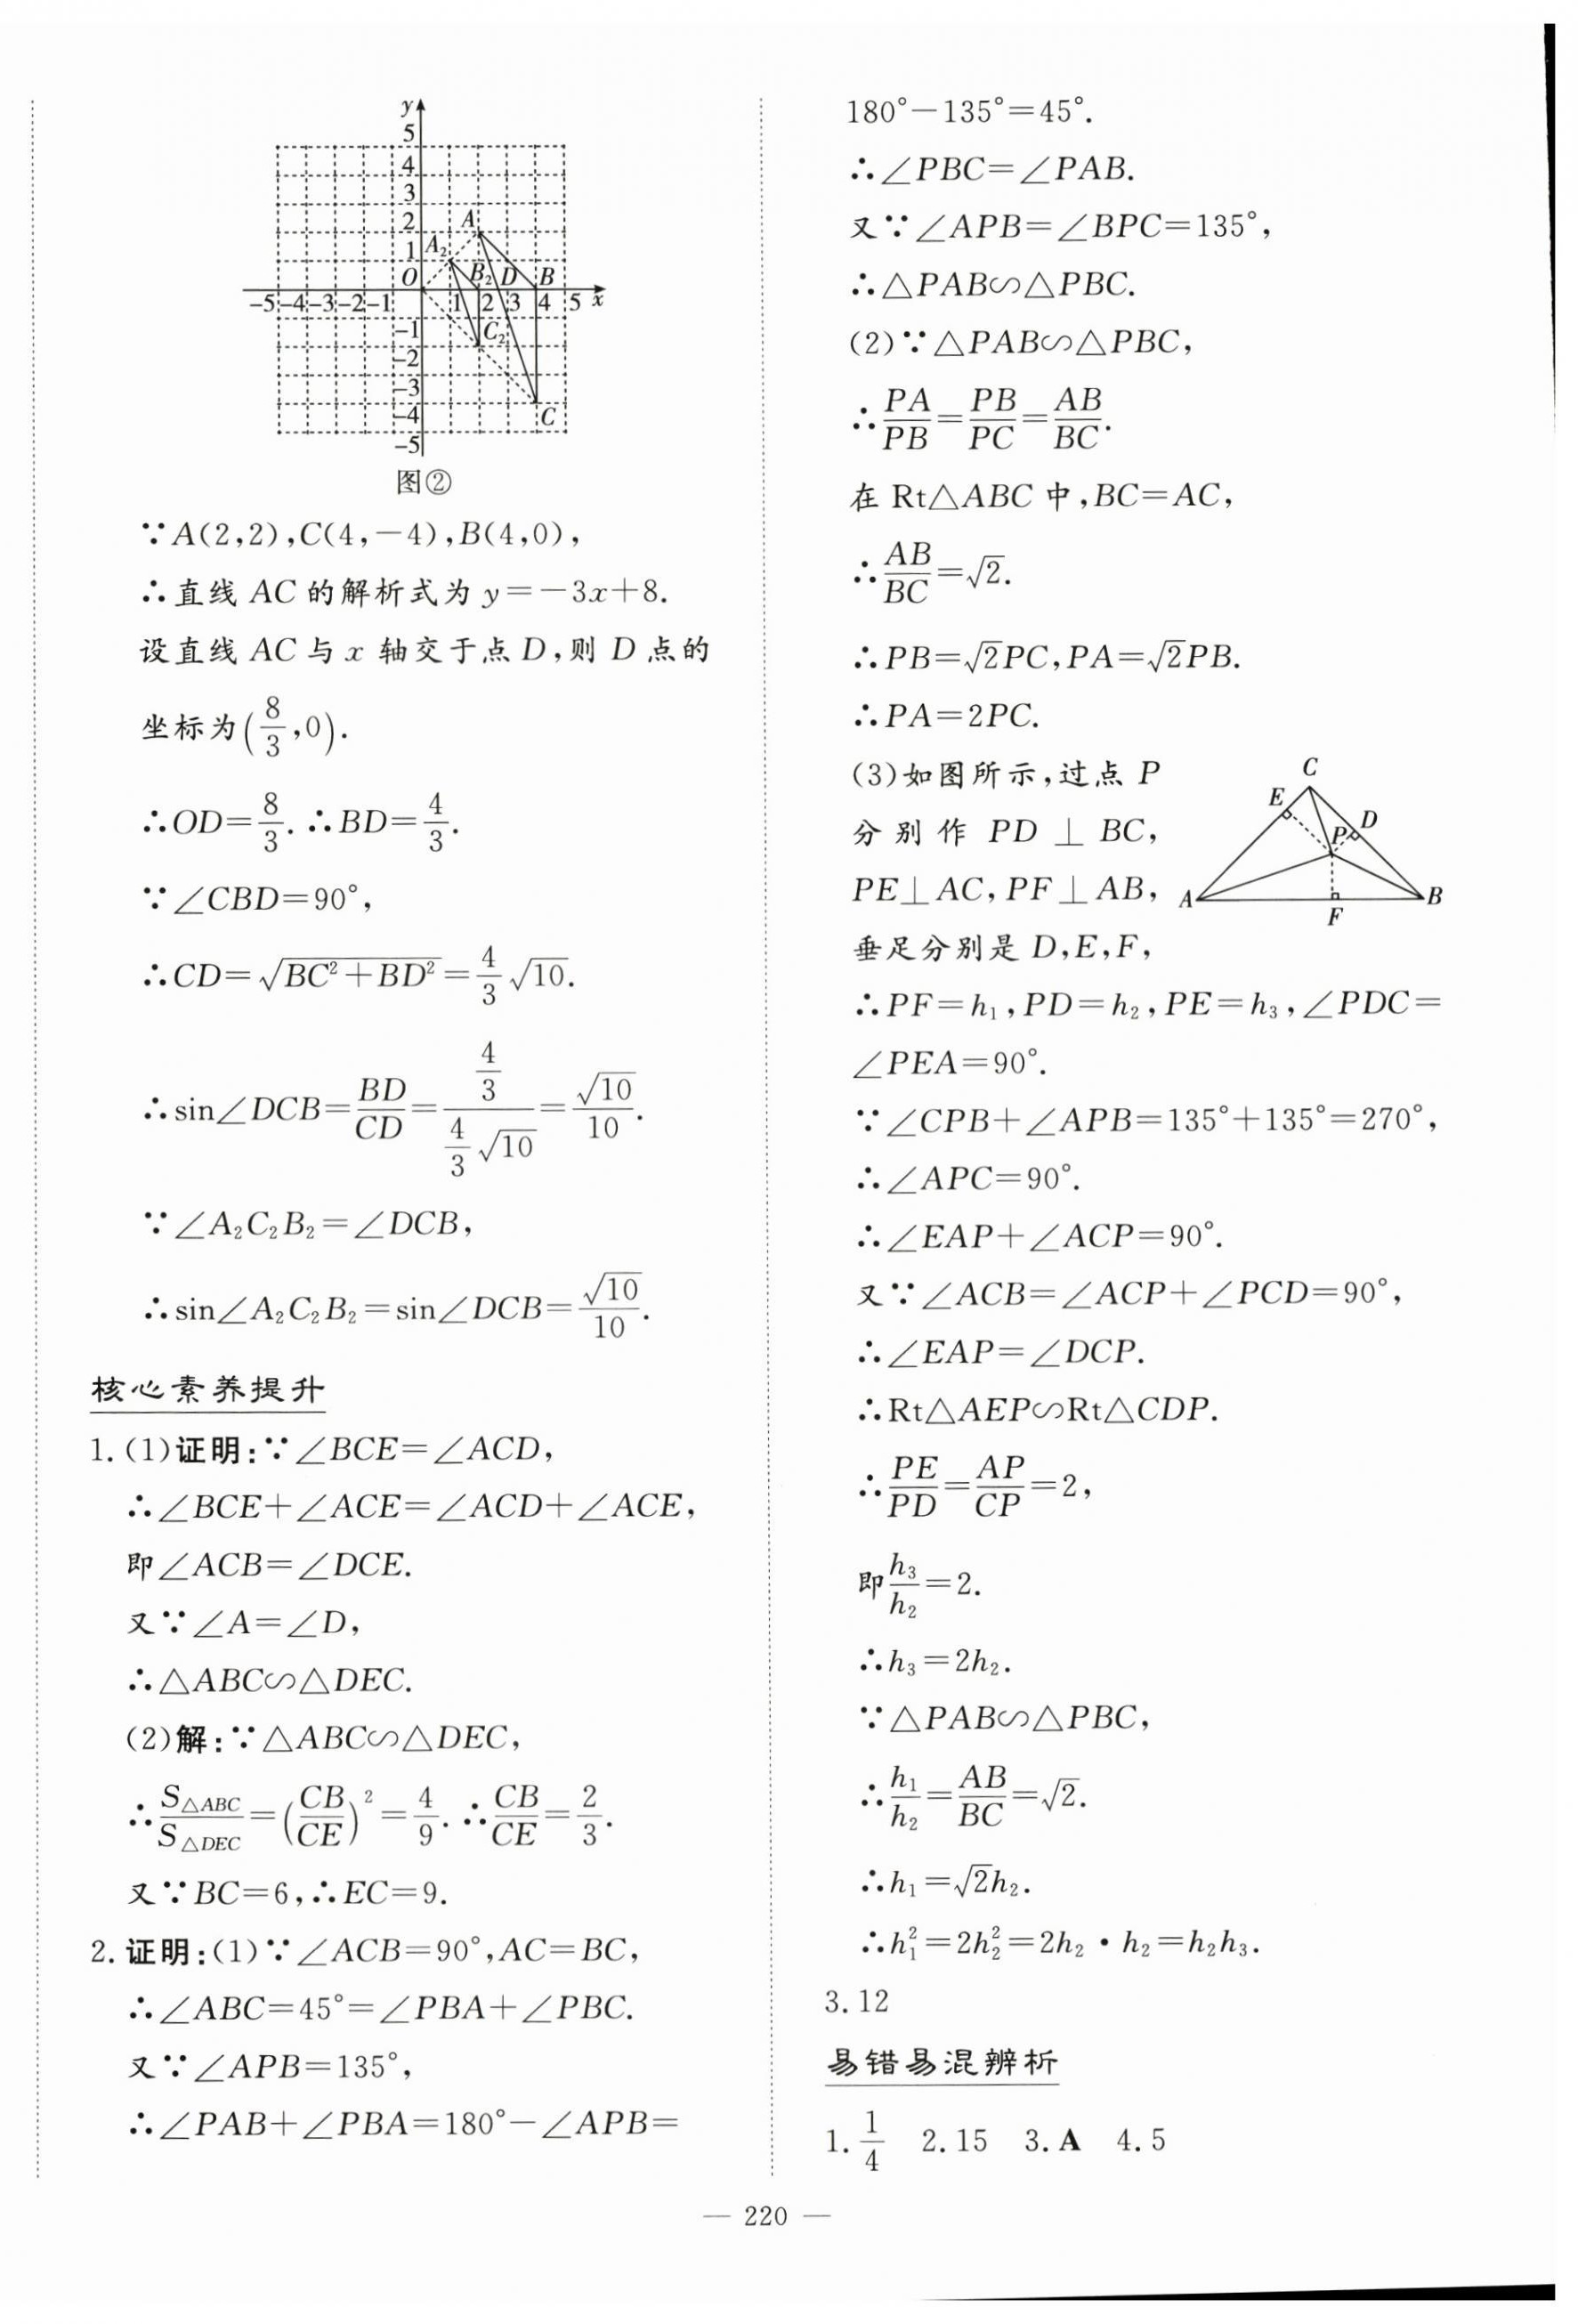 y
5
4
3
2
1
O
A
A₂
B₂
D
B
-5 -4 -3 -2 -1
1 2 3 4 5 x
-1
C₂
-2
-3
-4
C
-5
图②
∵A(2,2),C(4,-4),B(4,0),
∴直线 AC 的解析式为 y=-3x+8.
设直线 AC 与 x 轴交于点 D,则 D 点的
坐标为(8/3,0).
∴OD=8/3.∴BD=4/3.
∵∠CBD=90°,
∴CD=√(BC²+BD²)=4/3√10.
∴sin∠DCB=BD/CD=(4/3)/(4/3√10)=√10/10.
∵∠A₂C₂B₂=∠DCB,
∴sin∠A₂C₂B₂=sin∠DCB=√10/10.
核心素养提升
1.(1)证明:∵∠BCE=∠ACD,
∴∠BCE+∠ACE=∠ACD+∠ACE,
即∠ACB=∠DCE.
又∵∠A=∠D,
∴△ABC∽△DEC.
(2)解:∵△ABC∽△DEC,
∴S△ABC/S△DEC=(CB/CE)²=4/9.∴CB/CE=2/3.
又∵BC=6,∴EC=9.
2.证明:(1)∵∠ACB=90°,AC=BC,
∴∠ABC=45°=∠PBA+∠PBC.
又∵∠APB=135°,
∴∠PAB+∠PBA=180°-∠APB=
180°-135°=45°.
∴∠PBC=∠PAB.
又∵∠APB=∠BPC=135°,
∴△PAB∽△PBC.
(2)∵△PAB∽△PBC,
∴PA/PB=PB/PC=AB/BC.
在 Rt△ABC 中,BC=AC,
∴AB/BC=√2.
∴PB=√2PC,PA=√2PB.
∴PA=2PC.
(3)如图所示,过点 P
分别作 PD⊥BC,
PE⊥AC,PF⊥AB,
垂足分别是 D,E,F,
C
E
D
P
A
B
F
∴PF=h₁,PD=h₂,PE=h₃,∠PDC=
∠PEA=90°.
∵∠CPB+∠APB=135°+135°=270°,
∴∠APC=90°.
∴∠EAP+∠ACP=90°.
又∵∠ACB=∠ACP+∠PCD=90°,
∴∠EAP=∠DCP.
∴Rt△AEP∽Rt△CDP.
∴PE/PD=AP/CP=2,
即h₃/h₂=2.
∴h₃=2h₂.
∵△PAB∽△PBC,
∴h₁/h₂=AB/BC=√2.
∴h₁=√2h₂.
∴h₁²=2h₂²=2h₂·h₂=h₂h₃.
3.12
易错易混辨析
1.1/4 2.15 3.A 4.5
— 220 —